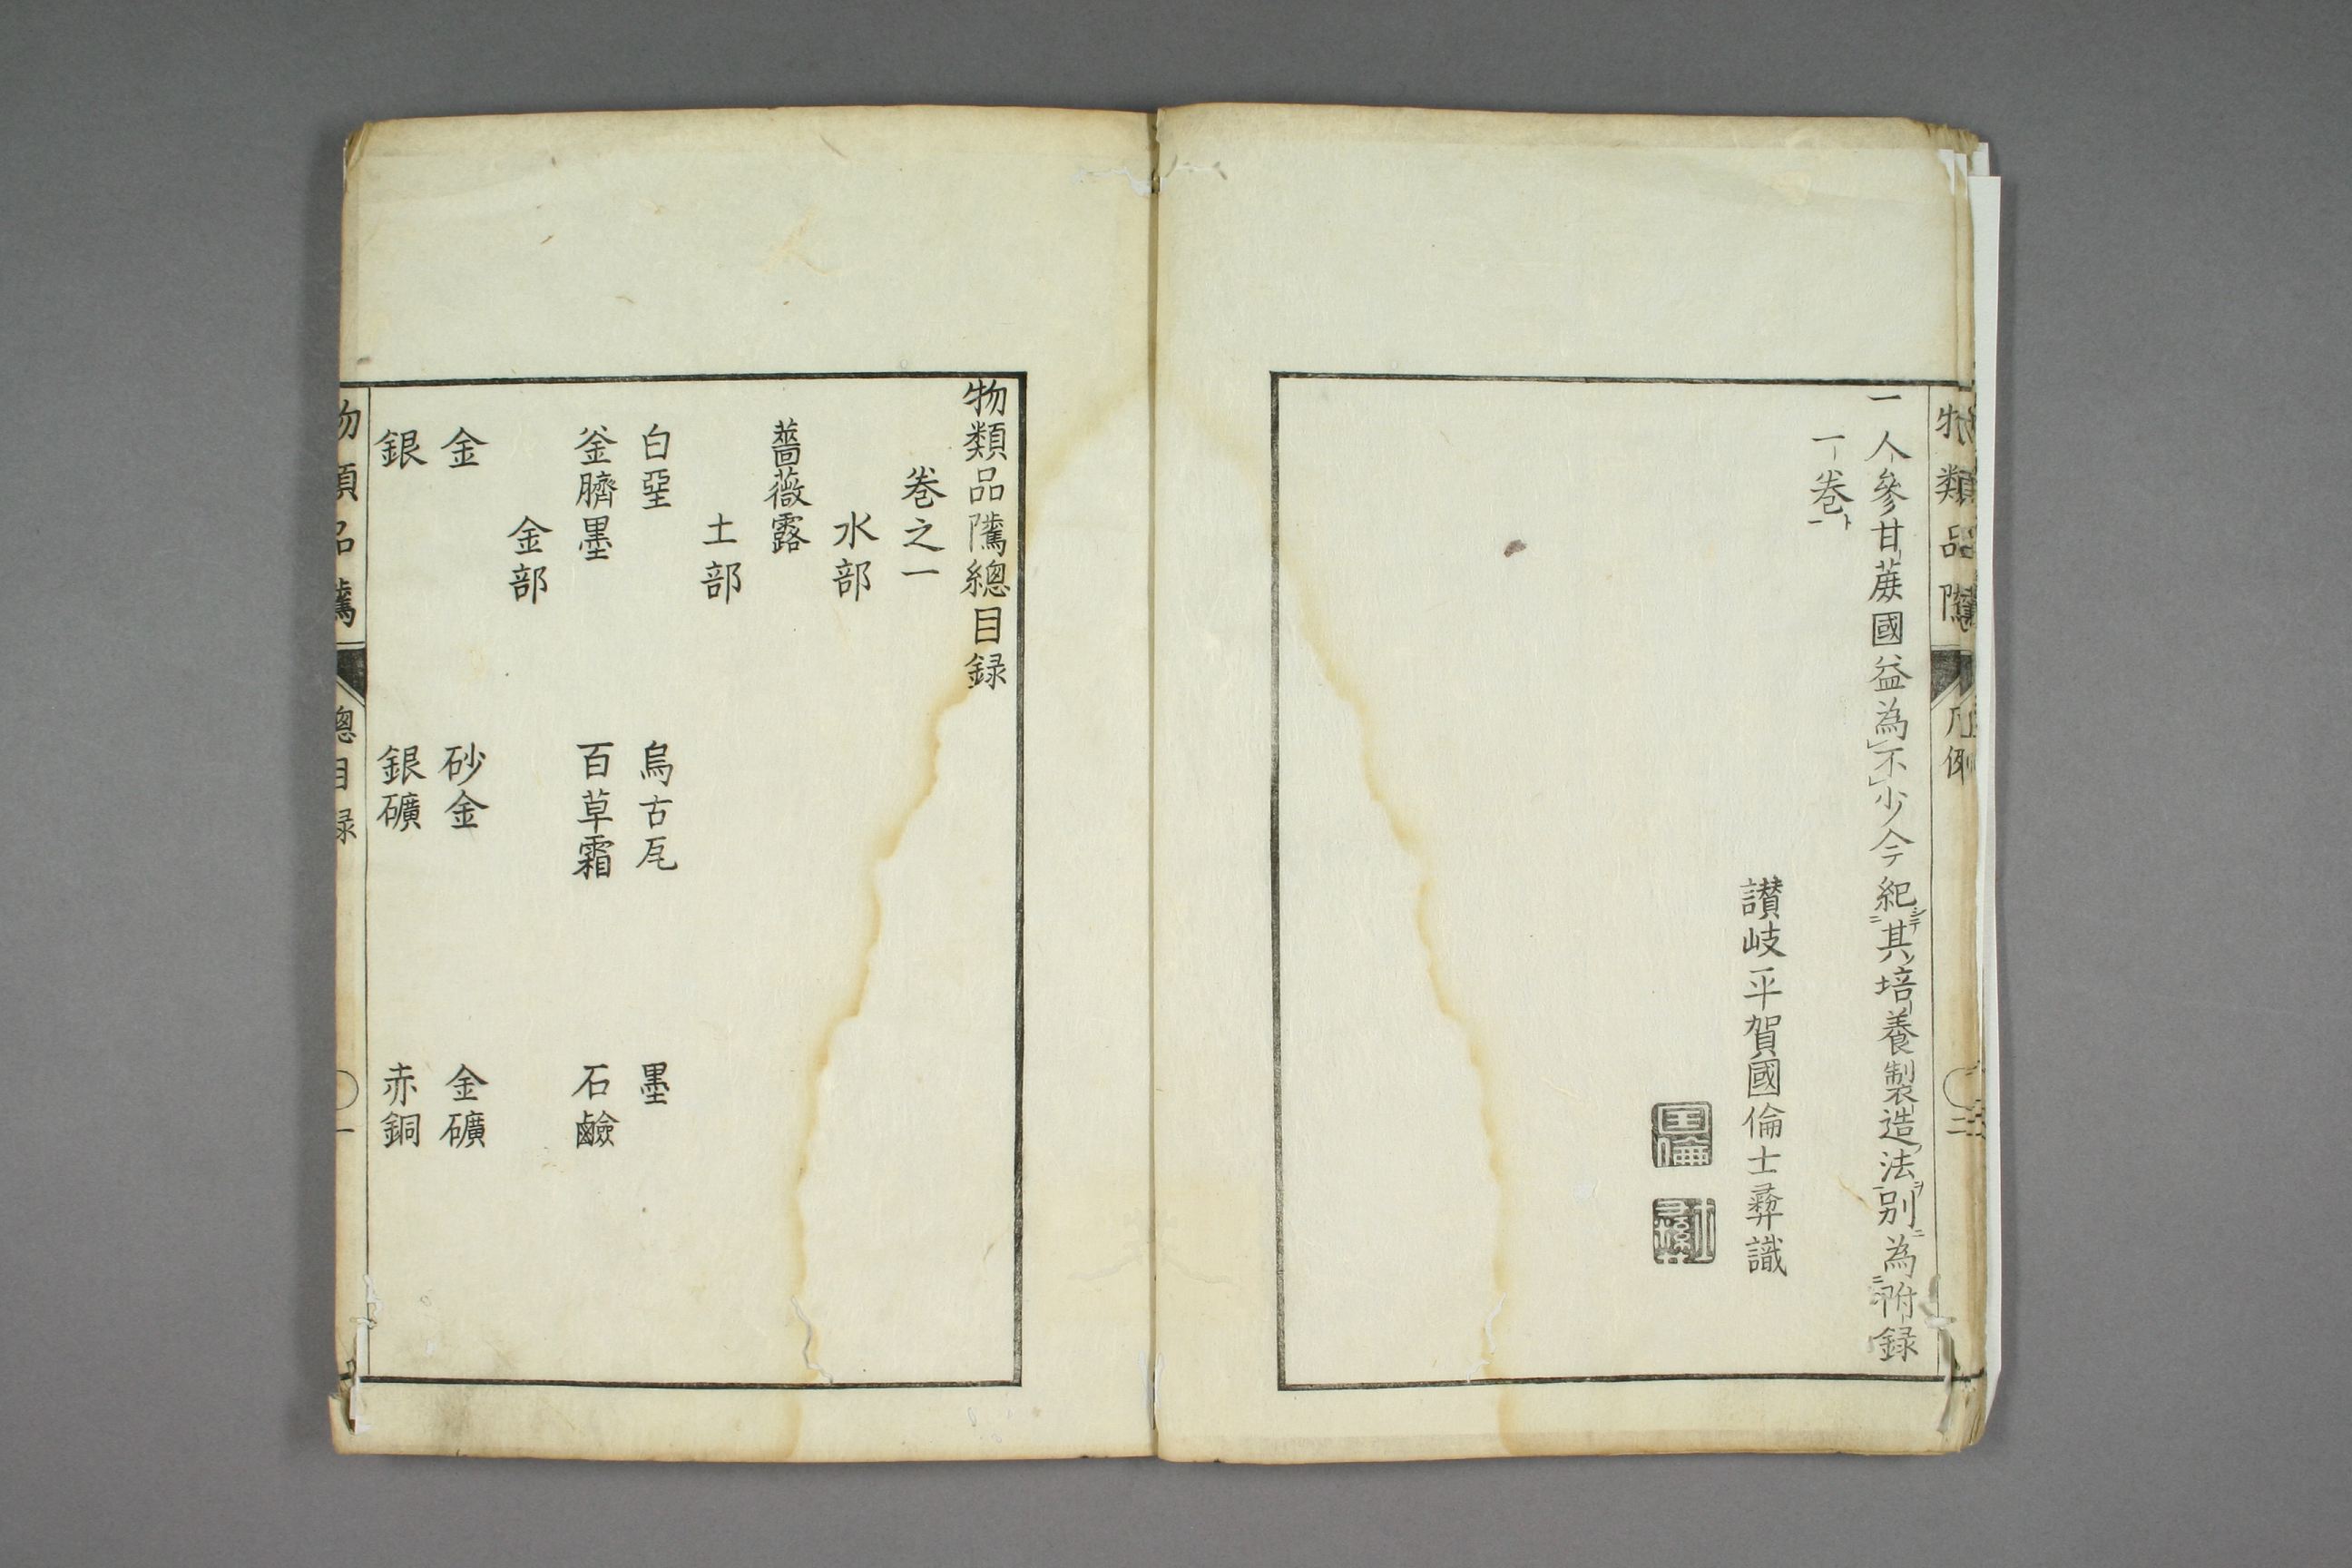 物類品隲
凡例
一人參甘蔗國益為不少今紀其培養製造法別為附録
一卷
讃岐平賀國倫士彝識
国倫
士彝
物類品隲總目録
巻之一
水部
薔薇露
土部
白堊 烏古瓦 墨
釜臍墨 百草霜 石鹼
金部
金 砂金 金礦
銀 銀礦 赤銅
物類品隲
總目録
一